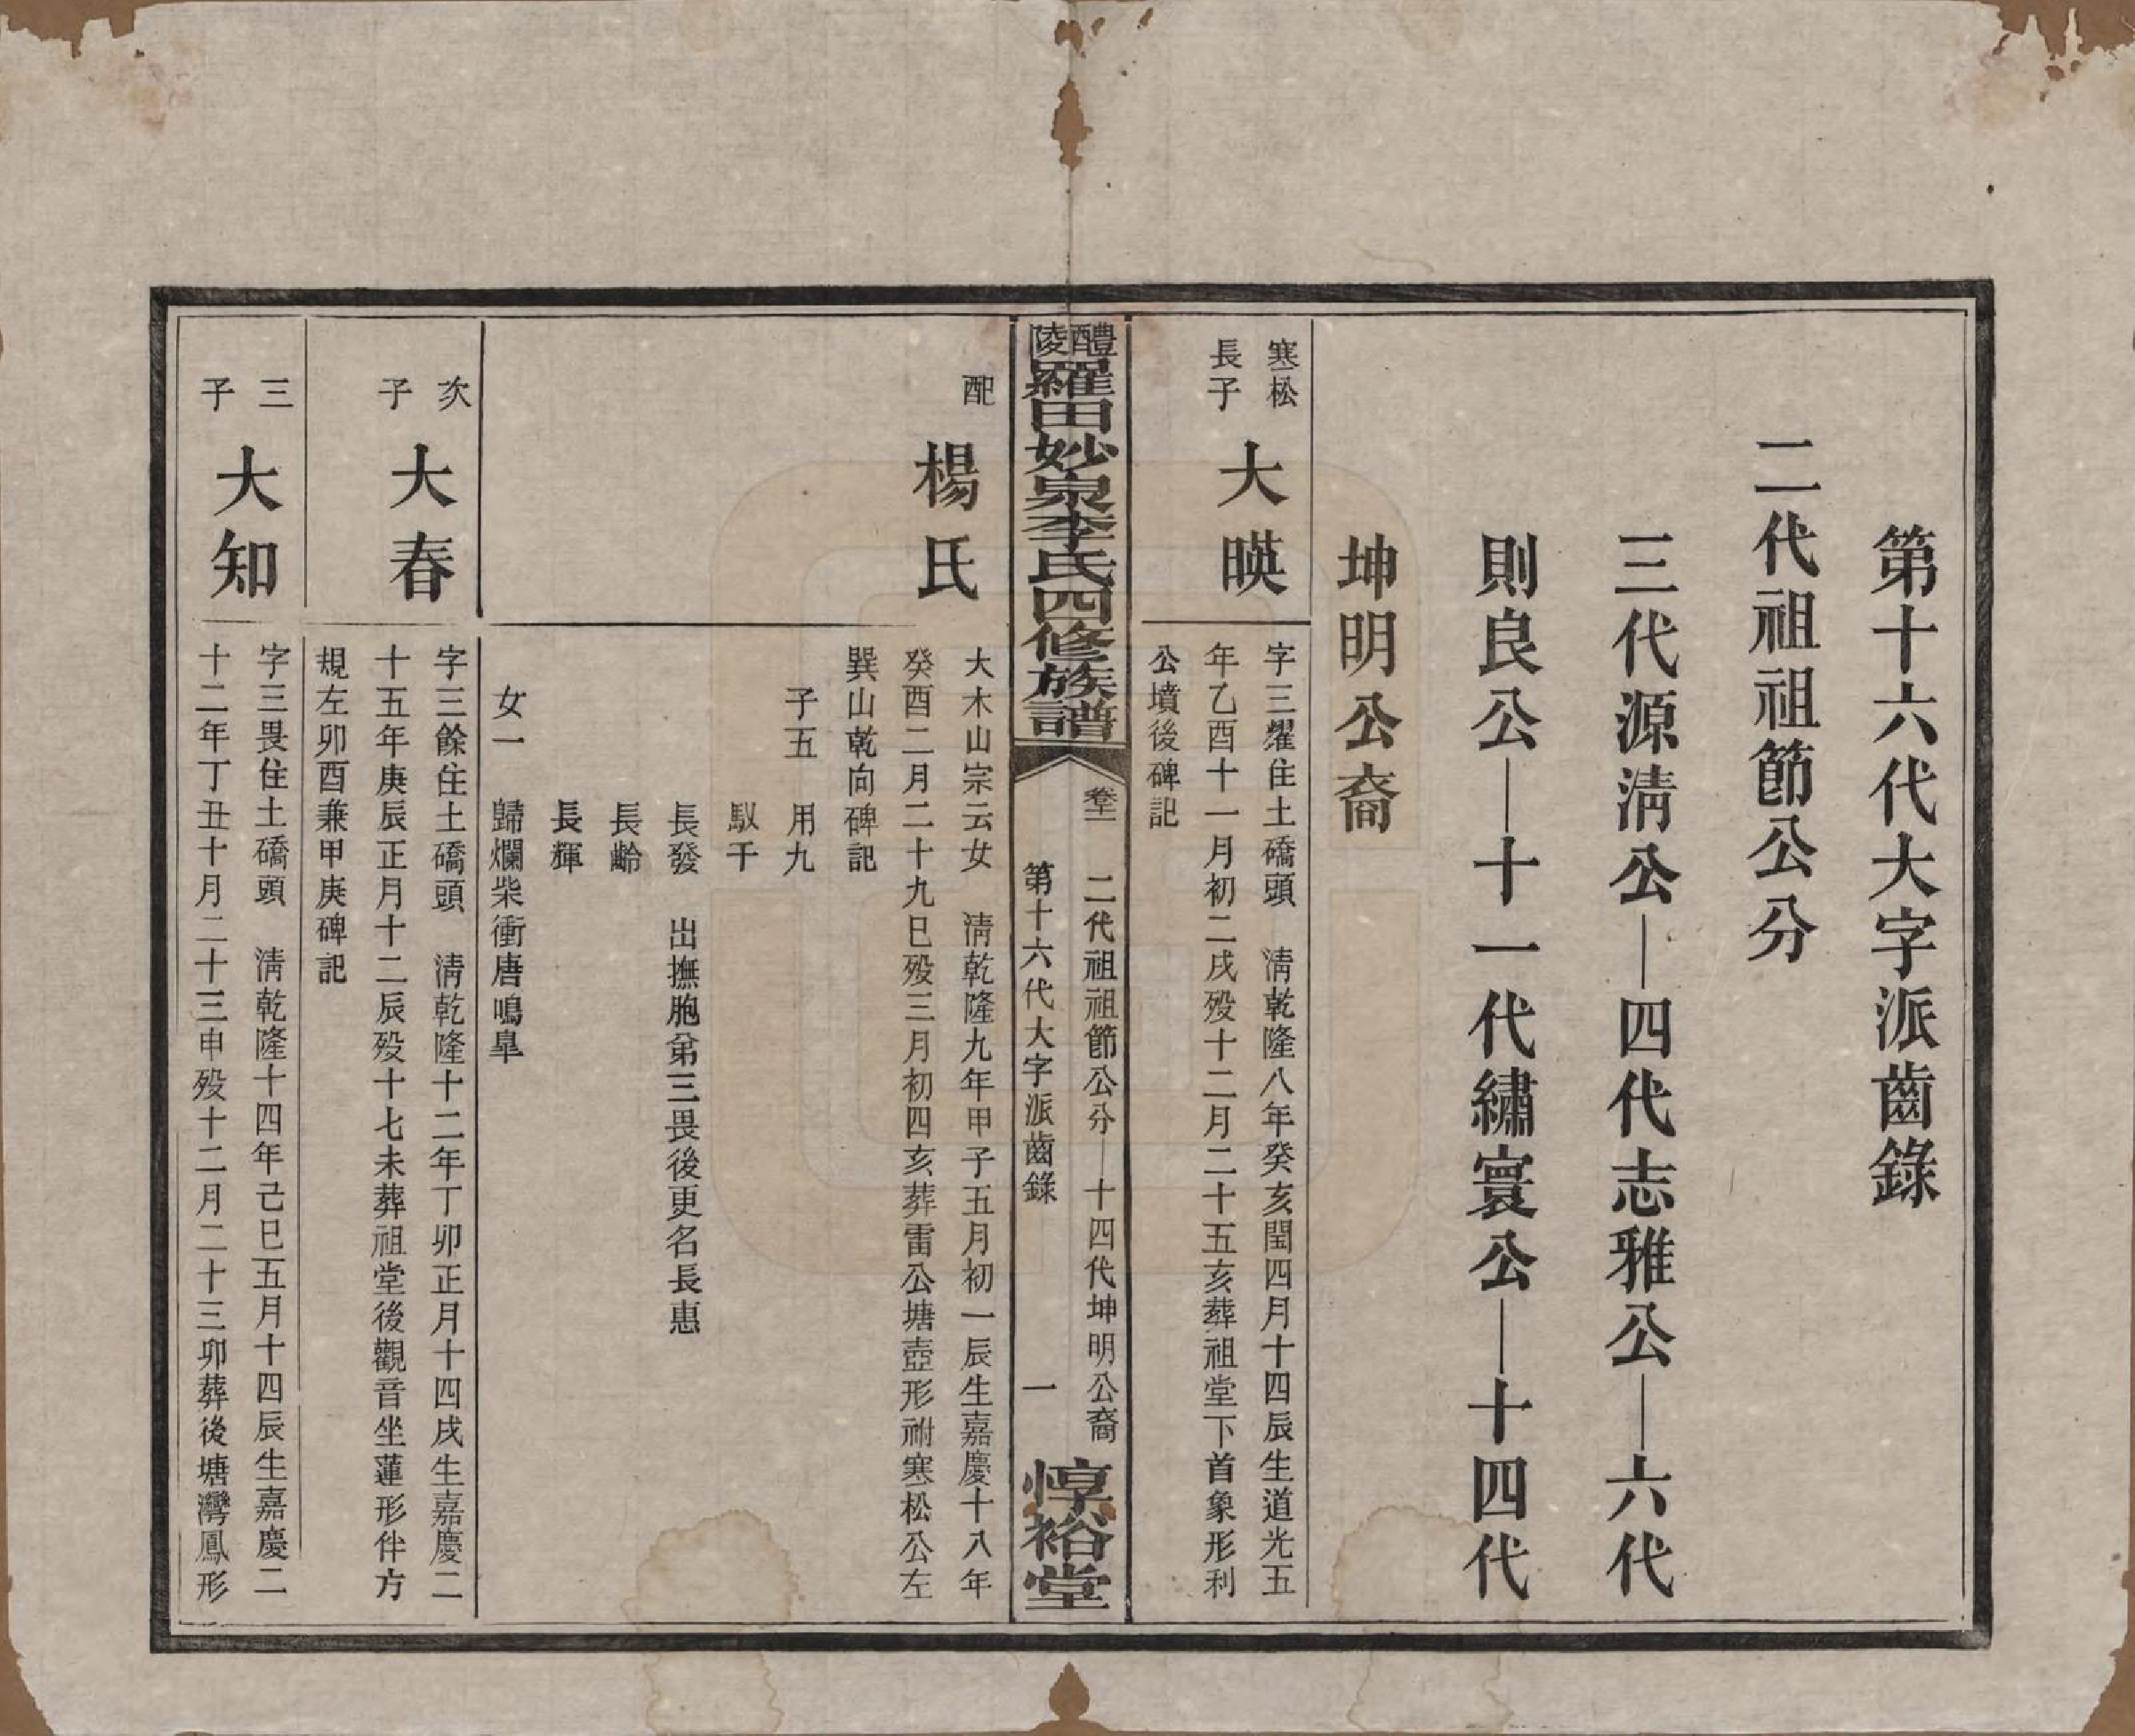 第十六代大字派齒錄
二代祖祖節公分
三代源淸公—四代志雅公—六代
則良公—十一代繡寰公—十四代
坤明公裔
寒松
長子
大暎
字三耀住土礄頭　淸乾隆八年癸亥閏四月十四辰生道光五
年乙酉十一月初二戌歿十二月二十五亥葬祖堂下首象形利
公墳後碑記
醴陵羅田妙泉李氏四修族譜
卷十一
二代祖祖節公分—十四代坤明公裔
第十六代大字派齒錄
一
惇裕堂
配
楊氏
大木山宗云女　淸乾隆九年甲子五月初一辰生嘉慶十八年
癸酉二月二十九巳歿三月初四亥葬雷公塘壺形祔寒松公左
巽山乾向碑記
子五　用九
馭干
長發　出撫胞弟三畏後更名長惠
長齡
長輝
女一　歸爛柴衝唐鳴臯
次
子
大春
字三餘住土礄頭　淸乾隆十二年丁卯正月十四戌生嘉慶二
十五年庚辰正月十二辰歿十七未葬祖堂後觀音坐蓮形伴方
規左卯酉兼甲庚碑記
三
子
大知
字三畏住土礄頭　淸乾隆十四年己巳五月十四辰生嘉慶二
十二年丁丑十月二十三申歿十二月二十三卯葬後塘灣鳳形